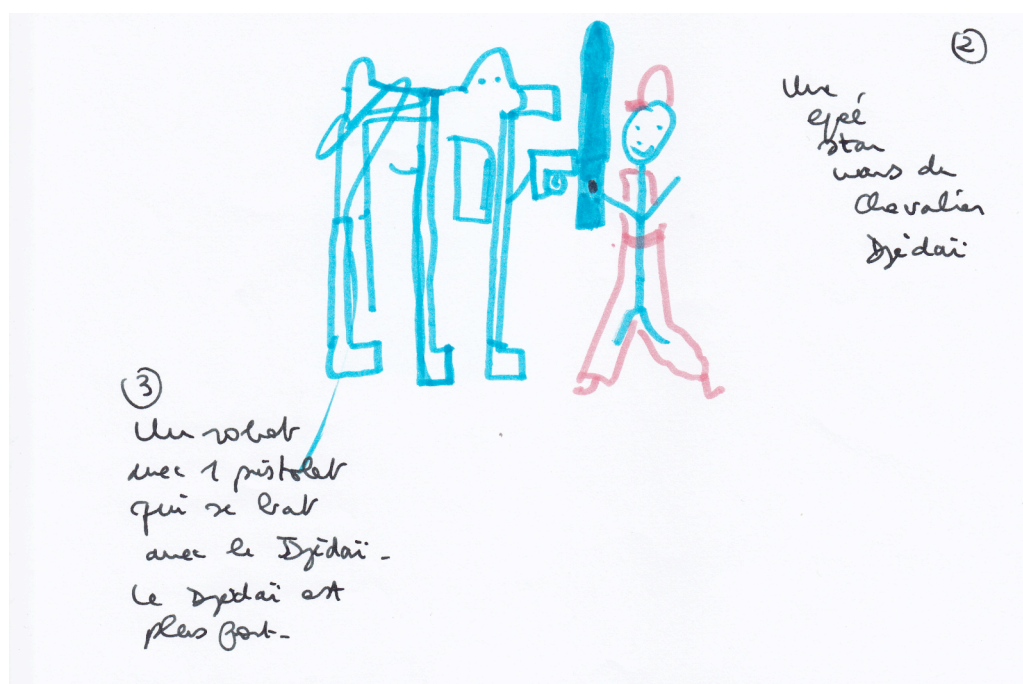 ②
Une
epé
star
wars du
Chevalier
Djédaï
③
Un robot
avec 1 pistolet
qui se bat
avec le Djédaï -
Le Djédaï est
plus fort -